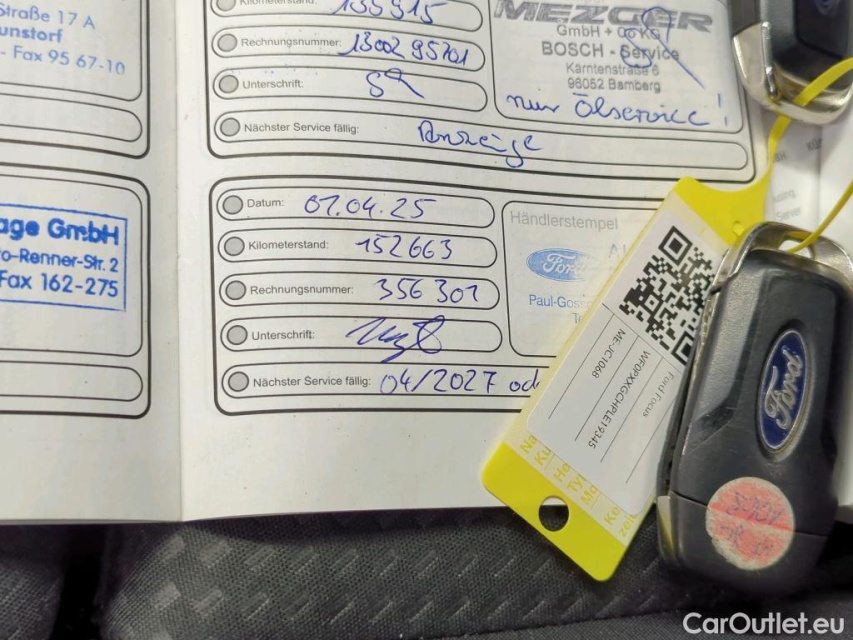 Straße 17 A
unstorf
- Fax 95 67-10
age GmbH
o-Renner-Str. 2
Fax 162-275
Kilometerstand: 135915
Rechnungsnummer: 130295701
Unterschrift:
Nächster Service fällig: Anzeige
MEZGER
GmbH + Co KG
BOSCH - Service
Kärntenstraße 6
96052 Bamberg
nur Ölservice!
Datum: 01.04.25
Kilometerstand: 152663
Rechnungsnummer: 356301
Unterschrift:
Nächster Service fällig: 04/2027 od
Händlerstempel
Ford
Paul-Goss
Ford Focus
WF0PXXGCHPLE19345
ME-JC1068
Ford
CarOutlet.eu